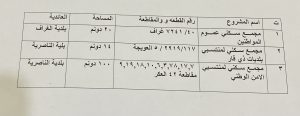 ت اسم المشروع رقم القطعة و والمقاطعة المساحة العائدية
١ مجمع سكني عموم المواطنين ٧٢٤١/٤٠ غراف ٢٠ دونم بلدية الغراف
٢ مجمع سكني لمنتسبي بلديات ذي قار ٢٩١٩/١١٧ / ٥ العويجة ١٤ دونم بلدية الناصرية
٣ مجمع سكني لمنتسبي الامن الوطني مقاطعة ٤٢ العكر ١٠٠ دونم بلدية الناصرية